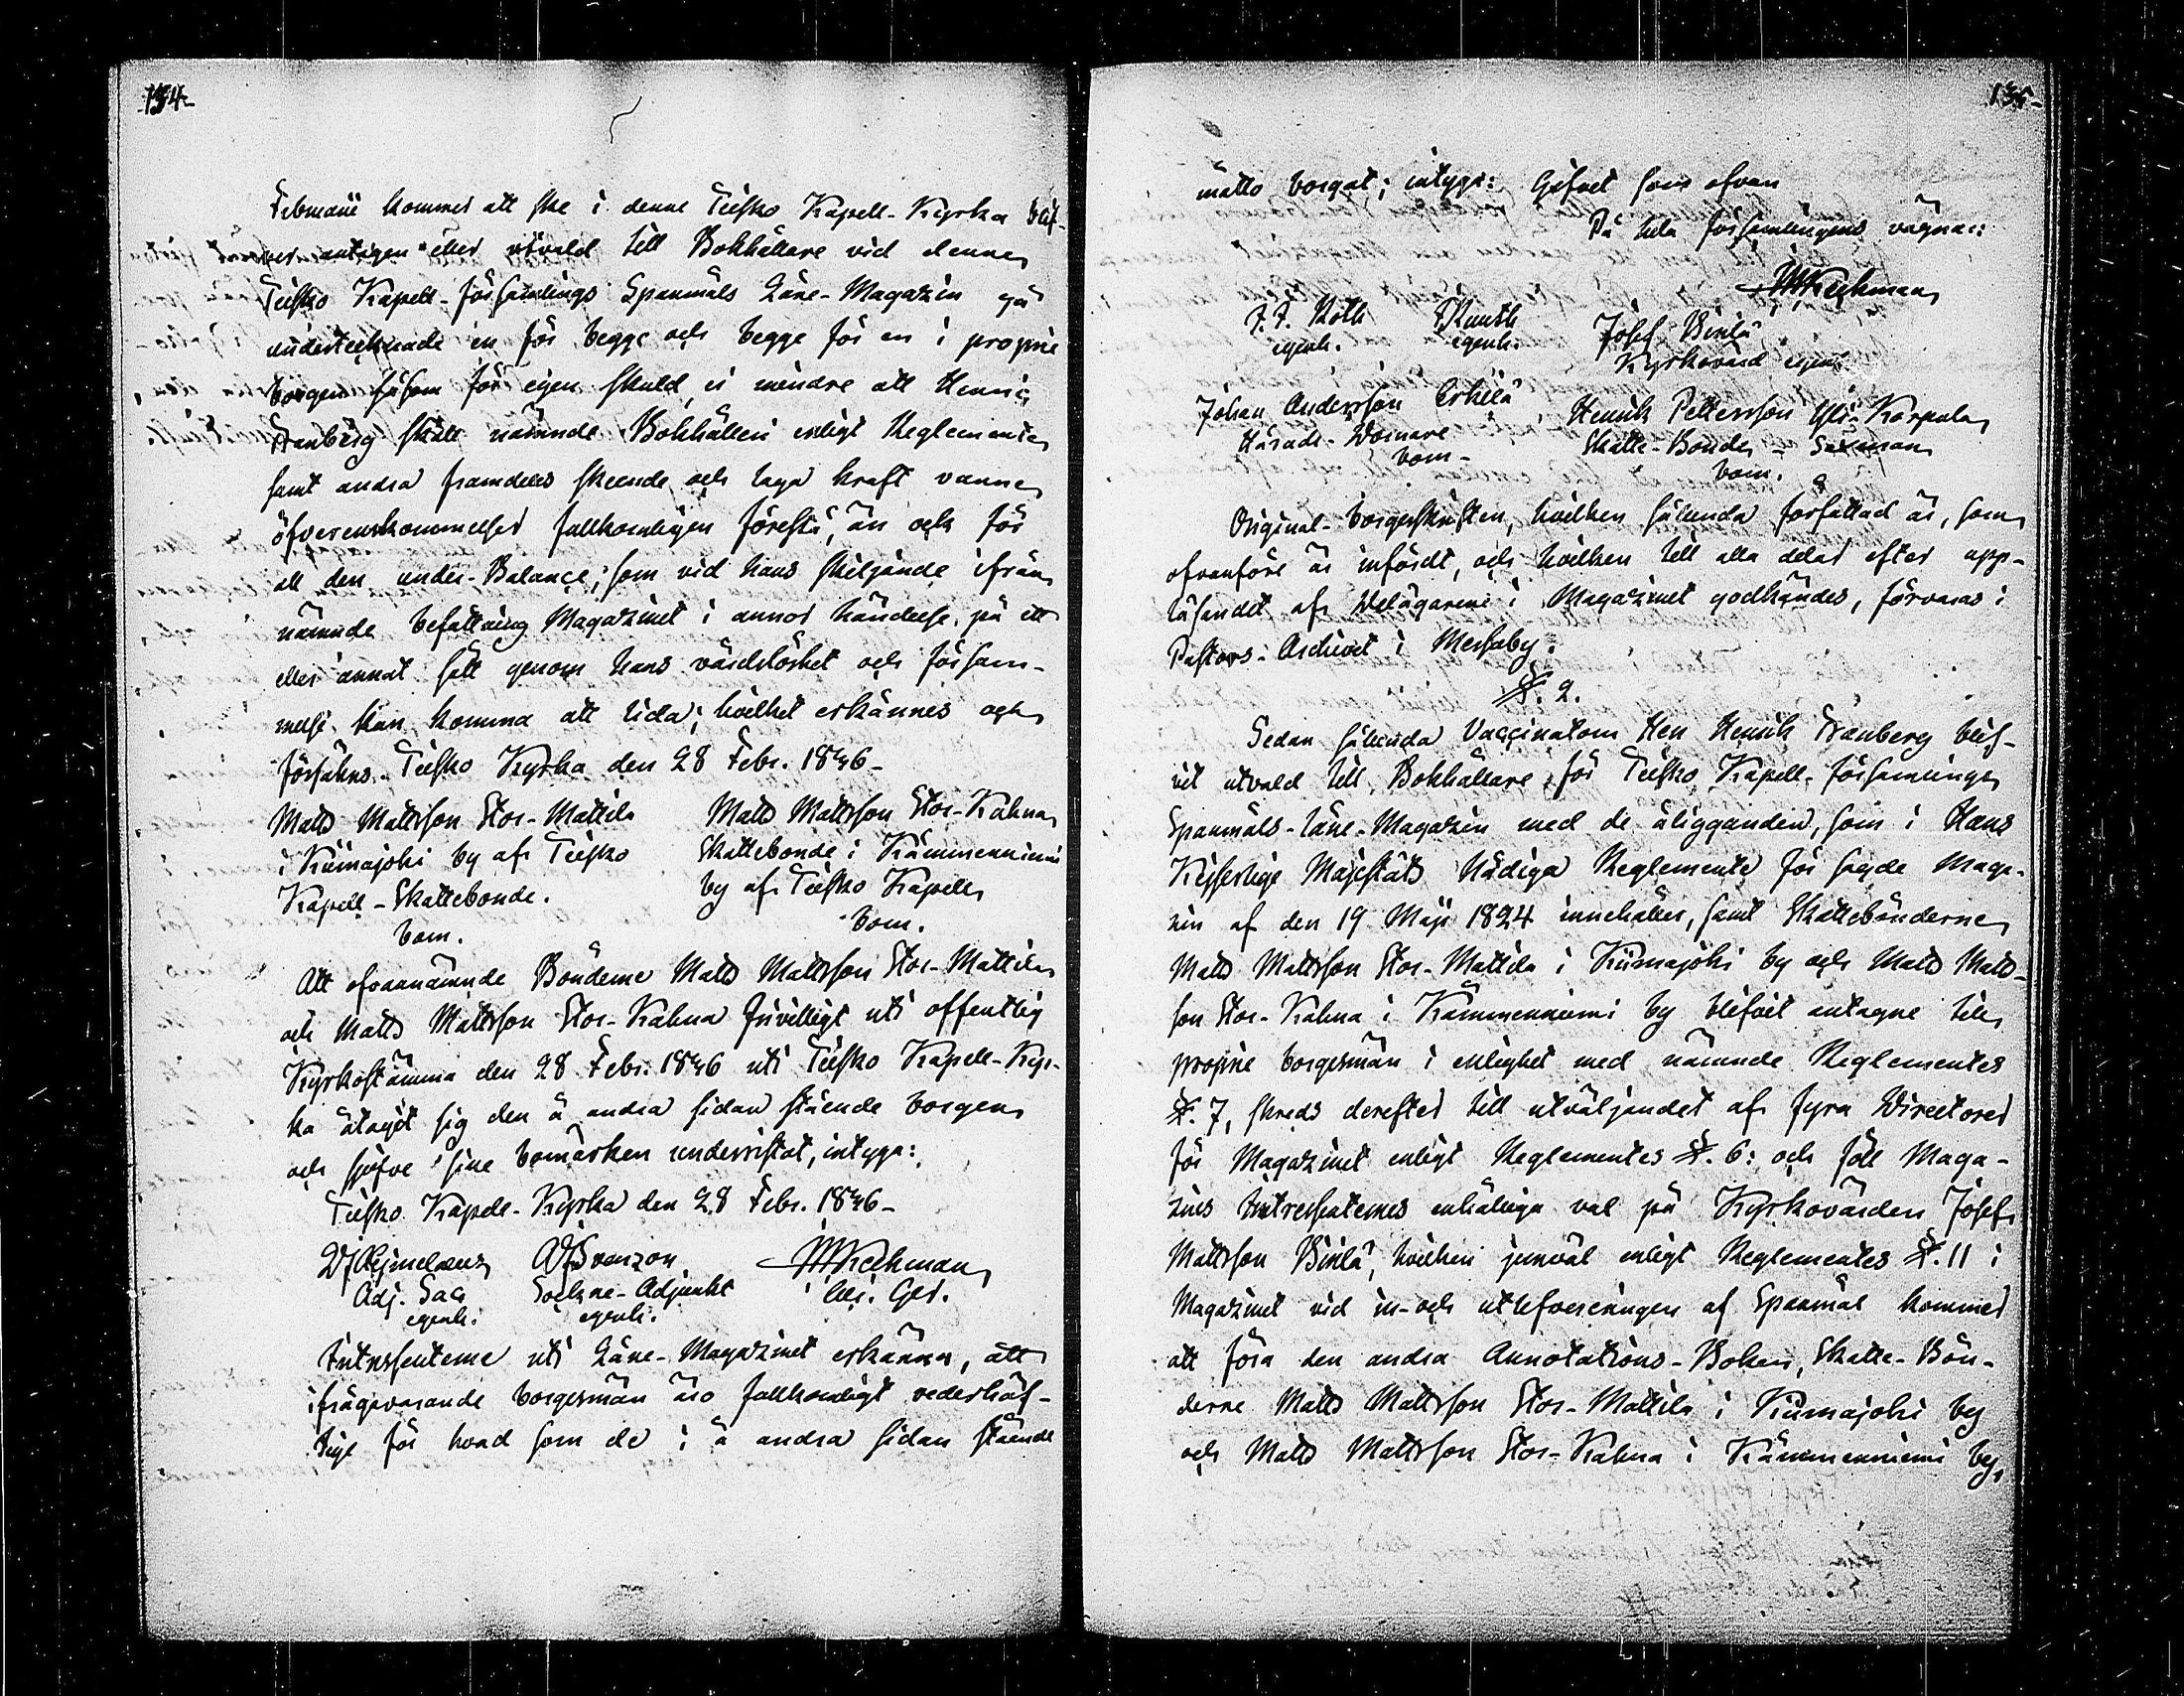 134.
Februarii kommer att ske i denne Teisko Kapell-Kyrka blif-
antagen eller utvald till Bokhållare vid denna
Teisko Kapell-församlings Spanmåls Låne-Magazin gå
undertecknade en för begge och begge för en i proprie
borgen såsom för egen skuld, ej mindre att Henric
Tranberg skall nämnde Bokhålleri enligt Reglemente
samt andra framdeles skeende och laga kraft vunna
öfverenskommelser fullkomligen förestå, än ock för
all den under-Balance, som vid hans skiljande ifrån
nämnde befattning Magazinet i annor händelse, på ett
eller annat sätt genom hans vårdslöshet och försum-
melse kan komma att lida; hvilket erkännes och
försäkras. Teisko Kyrka den 28 Febr. 1846-
Matts Mattsson Stor-Mattila
i Kiimajoki by af Teisko
Kapell-Skattebonde.
bom.
Matts Mattsson Stor-Kahna
Skattebonde i Kämmenniemi
by af Teisko Kapell
bom.
Att ofvannämnde Bönderne Matts Mattsson Stor-Mattila
och Matts Mattsson Stor-Kahna frivilligt uti offentlig
Kyrkostämma den 28 Febr. 1846 uti Teisko Kapell-Kyr-
ka åtagit sig den å andra sidan stående borgen
och sjelfve sine bomärken underristat, intyga:
Teisko Kapell-Kyrka den 28 Febr. 1846-
Adj. Sac
egenh.
Sockne-Adjunkt
egenh.
Intressenterne uti Låne-Magazinet erkänna, att
ifrågavarande borgesmän äro fullkomligt vederhäf-
tige för hvad som de i å andra sidan stående
135.
måtto borgat; intyga: Gifvet som ofvan
På hela församlingens vägnar:
egenh.
egenh.
Josef
Kyrkovärd egenh.
Johan Andersson Erkilä
Härads-Domare
bom-
Henrik Pettersson Yli-Karpala
Skatte-Bonde - Sexman
bom.
Original-borgesskriften, hvilken sålunda författad är, som
ofvanföre är infördt, och hvilken till alla delar efter upp-
läsandet af Delägarene i Magazinet godkändes, förvaras i
Pastors-Archivet i Messuby.
§. 2.
Sedan sålunda Vaccinatorn Herr Henrik Tranberg blif-
vit utvald till Bokhållare för Teisko Kapell-församlings
Spanmåls-Låne-Magazin med de åligganden, som i Hans
Kejserlige Majestäts Nådiga Reglemente för sagde Maga-
zin af den 19 Maji 1824 innehålles, samt Skattebönderne
Matts Mattsson Stor-Mattila i Kiimajoki by och Matts Matts-
son Stor-Kahna i Kämmenniemi by blifvit antagne till
proprie borgesmän i enlighet med nämnde Reglementes
§. 7, skreds derefter till utväljandet af fyra Directorer
för Magazinet enligt Reglementes §. 6: och föll Maga-
zins Intressenternes enhälliga val på Kyrkovärden Josef
Mattsson hvilken jemväl enligt Reglementes §. 11 i
Magazinet vid in- och utlefvereringen af Spanmål kommer
att föra den andra Annotations-Boken, Skatte-Bön-
derne Matts Mattsson Stor-Mattila i Kiimajoki by
och Matts Mattsson Stor-Kahna i Kämmenniemi by,